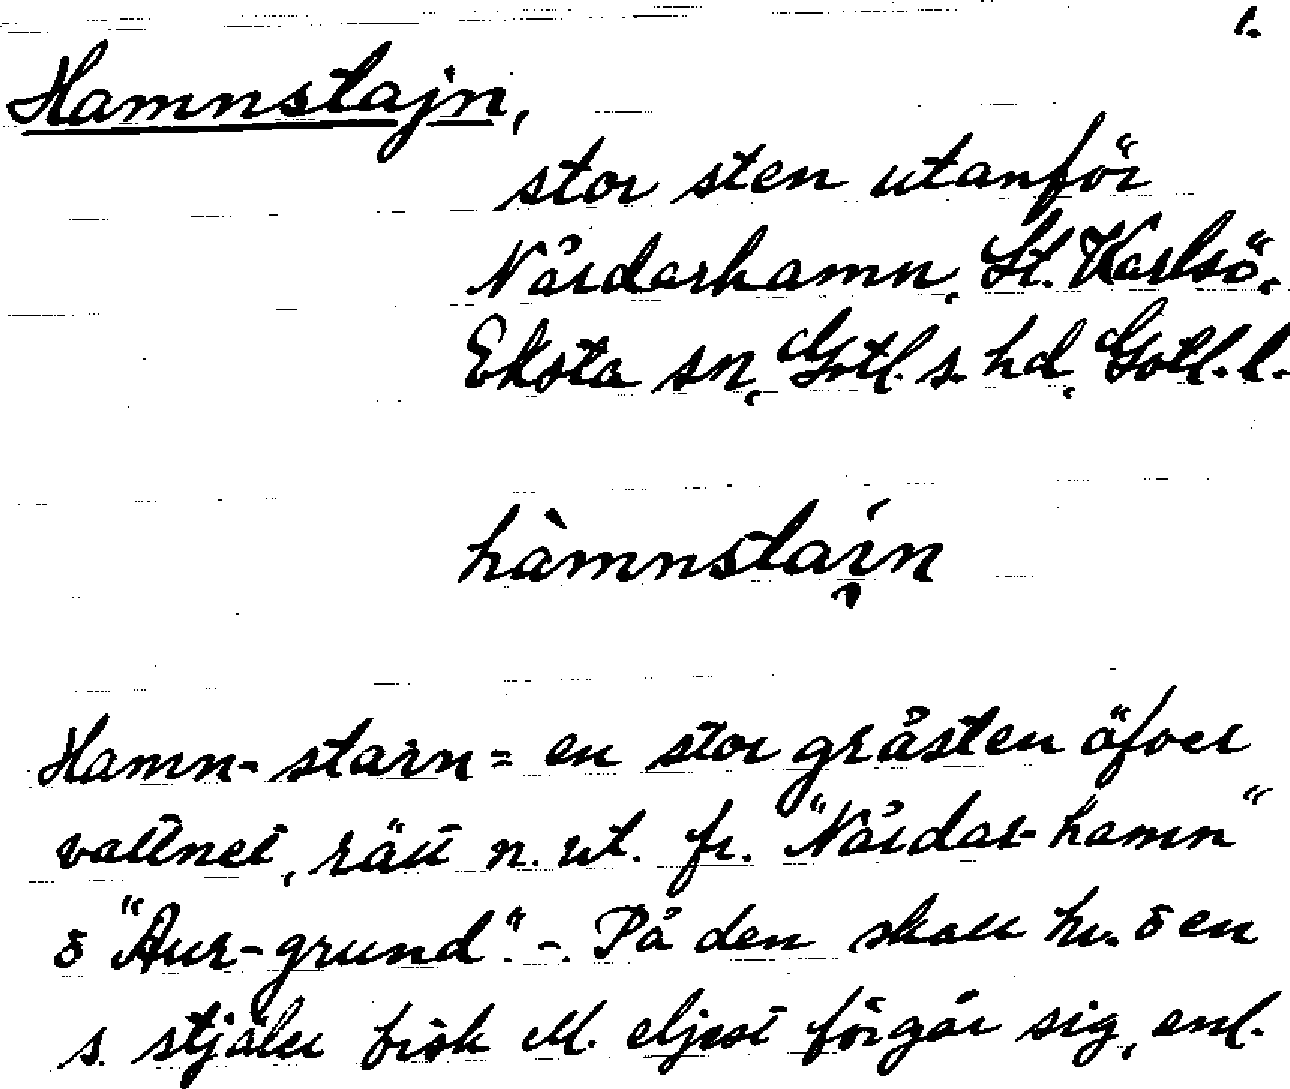 1.
Hamnstajn,
stor sten utanför
Nårdarhamn, St. Karlsö,
Eksta sn, Gotl. s. hd, Gotl. l.
hàmnstai̯n
Hamn-stain = en stor gråsten öfver
vattnet, rätt n. ut. fr. "Nårdar-hamn"
o "Aur-grund". -. På den skall hv. o en
s. stjäler fisk el. eljest förgår sig, enl.